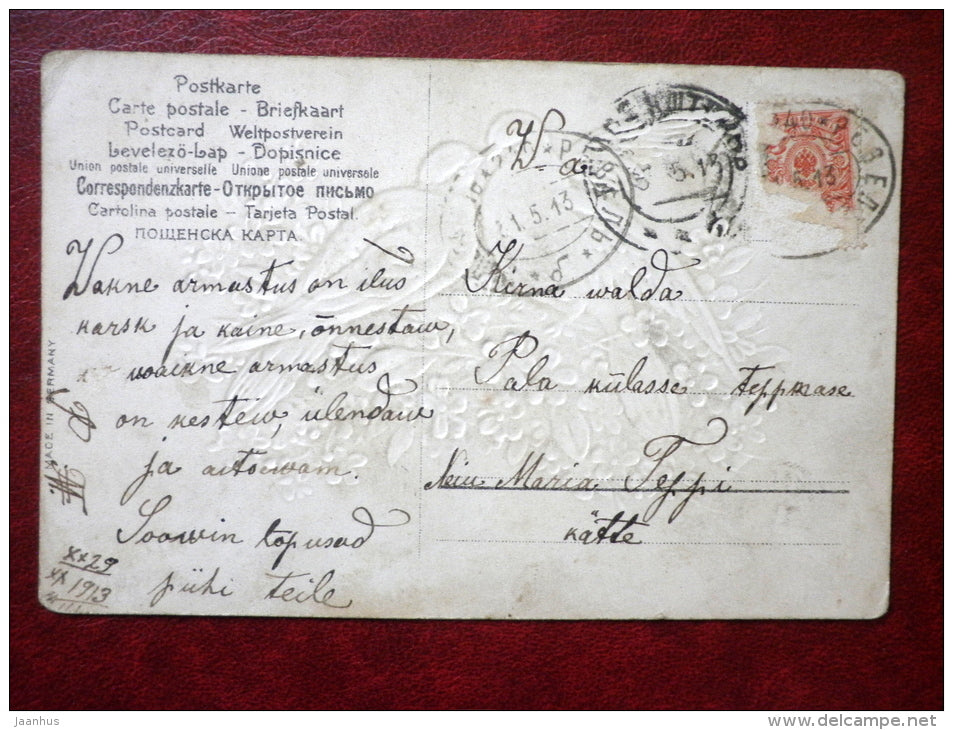 Postkarte
Carte postale - Briefkaart
Postcard Weltpostverein
Levelező-Lap - Dopisnice
Union postale universelle Unione postale universole
Correspondenzkarte - Открытое письмо
Cartolina postale - Tarjeta Postal.
ПОЩЕНСКА КАРТА.
Wakne armastus on ilus
karsk ja kaine, õnnestaw,
waikne armastus
on kestew, ülendaw
ja aitawam.
Soowin topusad
pühi teile
MADE IN GERMANY
XX29
XX 1913
21.5.13
5.13
5.13
Kirna walda
Pala külasse teppxase
Neiu Maria Teppi
kätte
jaanhus
http://www.delcampe.net